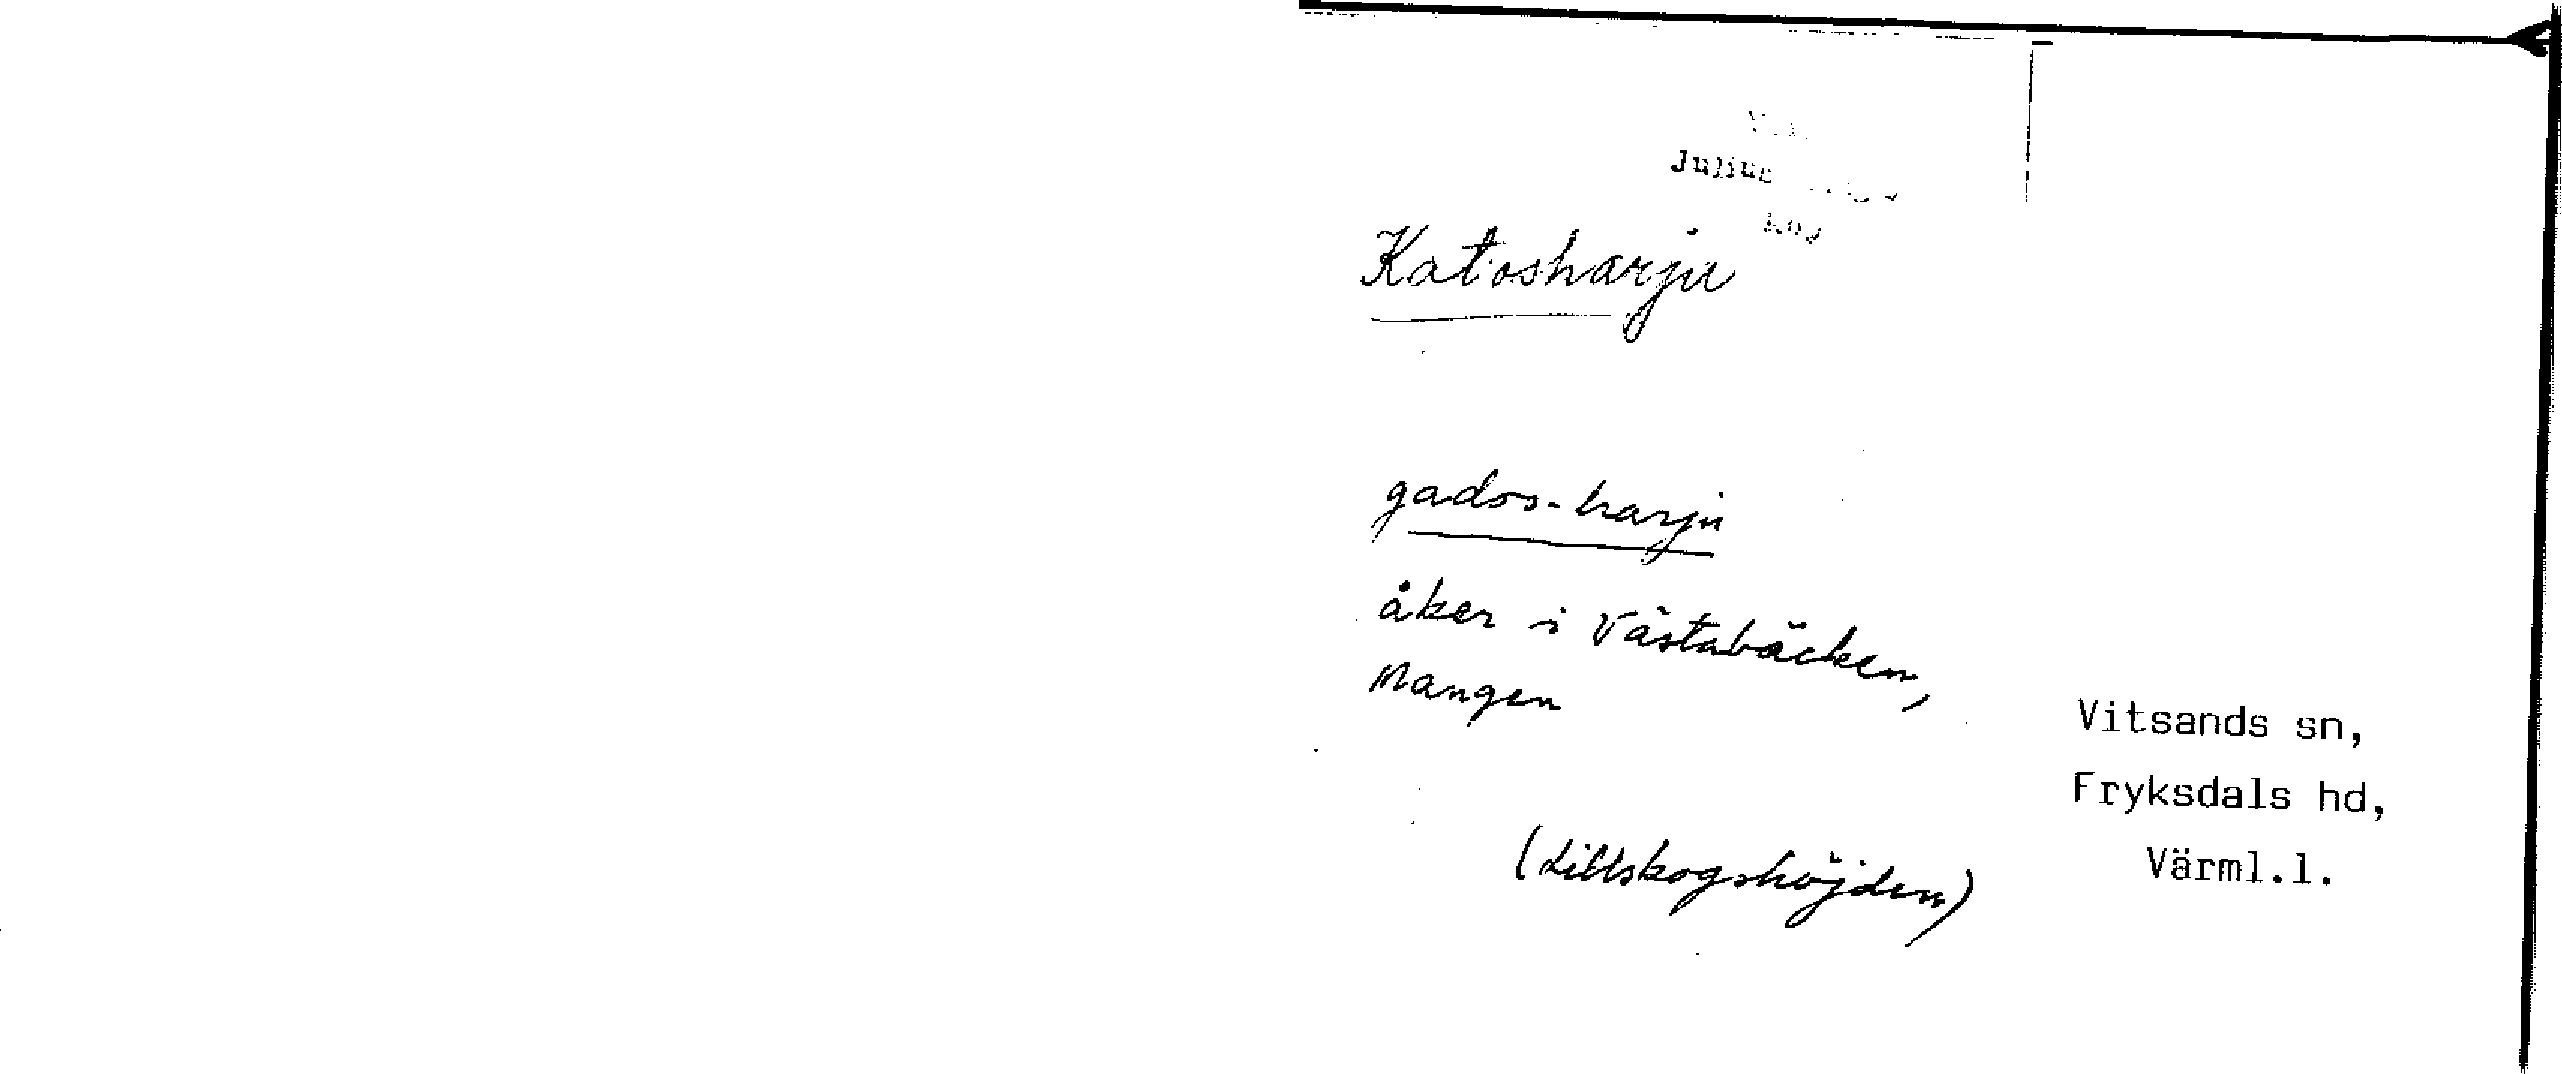 Julius
Katosharju
gados-harju
åker i Västabäcken,
Mangen
Vitsands sn,
Fryksdals hd,
Värml.l.
(Lillskogshöjden)